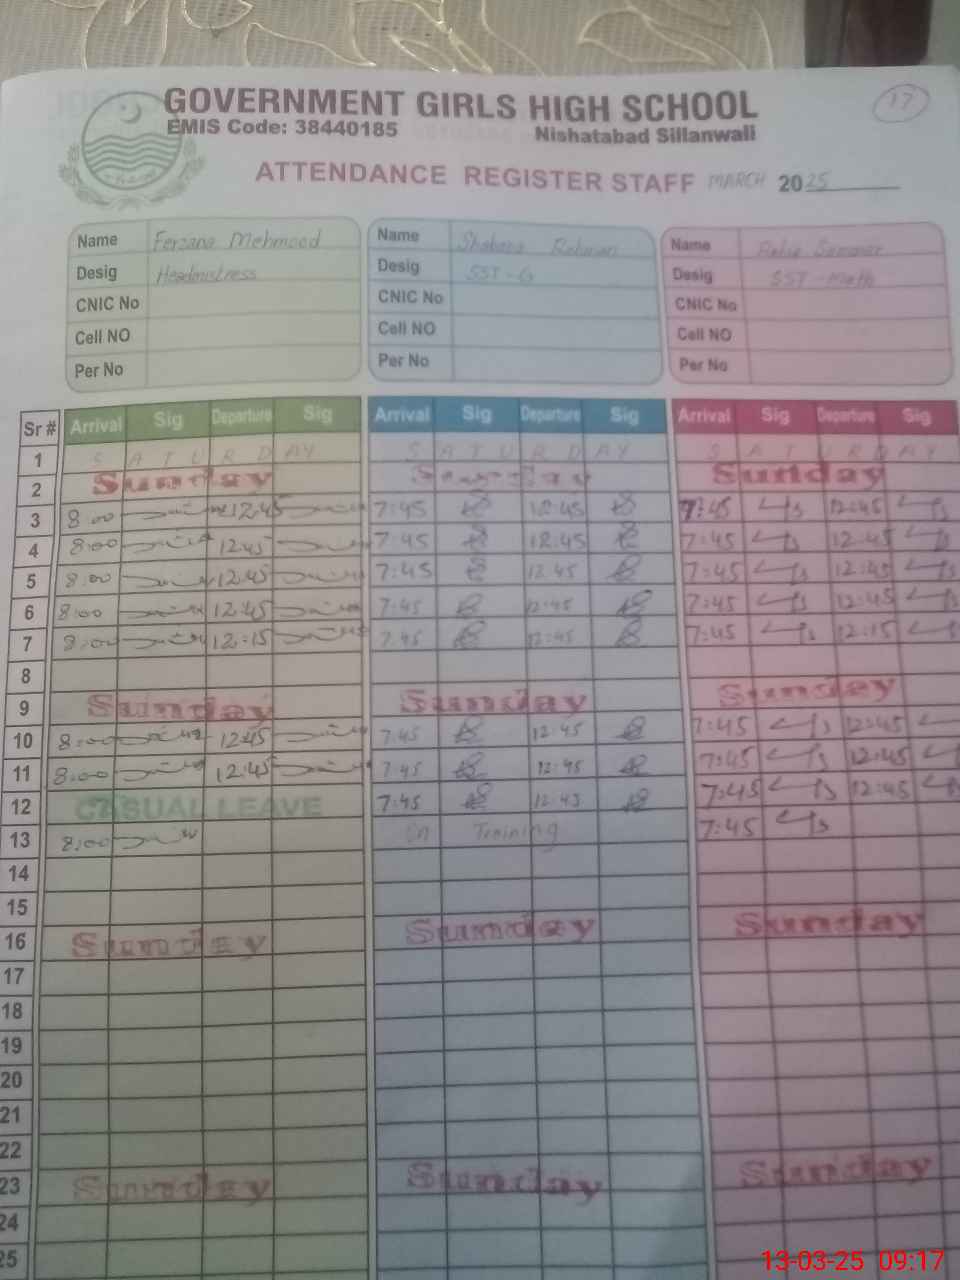 GOVERNMENT GIRLS HIGH SCHOOL 17
EMIS Code: 38440185 Nishatabad Sillanwali
ATTENDANCE REGISTER STAFF MARCH 2025
Name Ferzana Mehmood Name Shabana Rehman Name
Desig Headmistress Desig SST-G Desig SST-Math
CNIC No CNIC No CNIC No
Cell NO Cell NO Cell NO
Per No Per No Per No
Sr # Arrival Sig Departure Sig Arrival Sig Departure Sig Arrival Sig Departure Sig
1 SATURDAY SATURDAY SATURDAY
2 Sunday Sunday Sunday
3 8:00 12:45 7:45 12:45 7:45 12:45
4 8:00 12:45 7:45 12:45 7:45 12:45
5 8:00 12:45 7:45 12:45 7:45 12:45
6 8:00 12:45 7:45 12:45 7:45 12:45
7 8:00 12:15 7:45 12:45 7:45 12:15
8
9 Sunday Sunday Sunday
10 8:00 12:45 7:45 12:45 7:45 12:45
11 8:00 12:45 7:45 12:45 7:45 12:45
12 CASUAL LEAVE 7:45 12:43 7:45 12:45
13 8:00 on Training 7:45
14
15
16 Sunday Sunday Sunday
17
18
19
20
21
22
23 Sunday Sunday Sunday
24
25
13-03-25 09:17